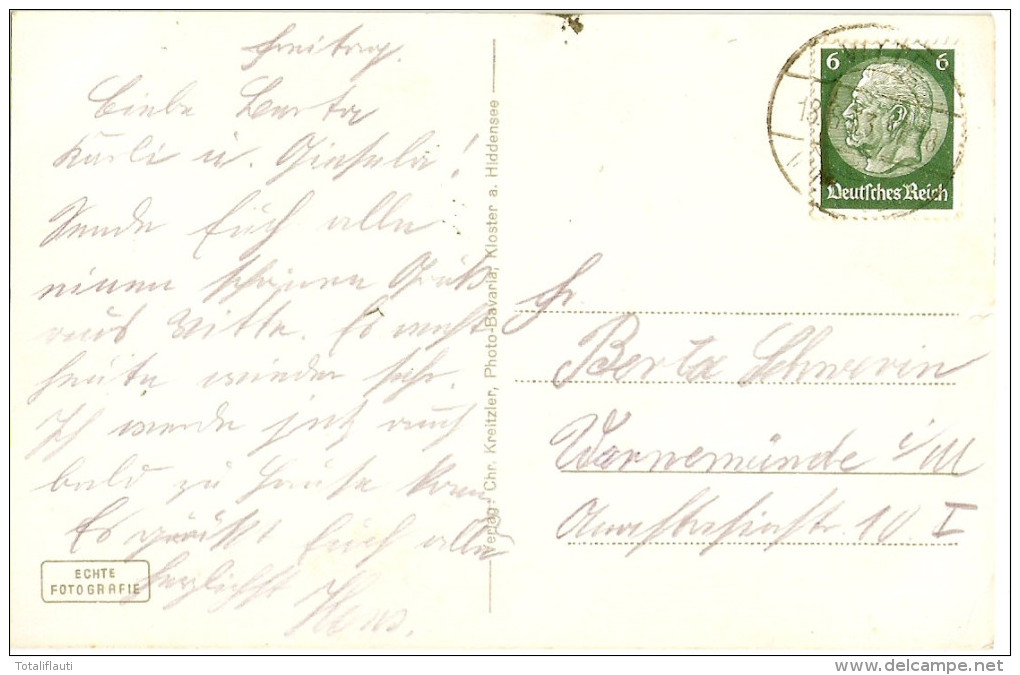 Freitag.
Liebe Berta
Karli u. Gisela!
Sende Euch alle
einen schönen Gruß
aus Vitte. Es weht
heute wieder sehr.
Ich werde jetz auch
bald zu Hause komm
Es grüßt Euch alle
herzlichst Hans.
ECHTE
FOTOGRAFIE
Verlag: Chr. Kreitzler, Photo-Bavaria, Kloster a. Hiddensee
6 6
Deutsches Reich
Fr.
Berta Schwerin
Warnemünde i/M
10 I
Totaliflauti
www.delcampe.net